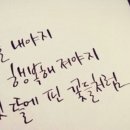 내야지
행복해 져야지
들에 핀 꽃들처럼